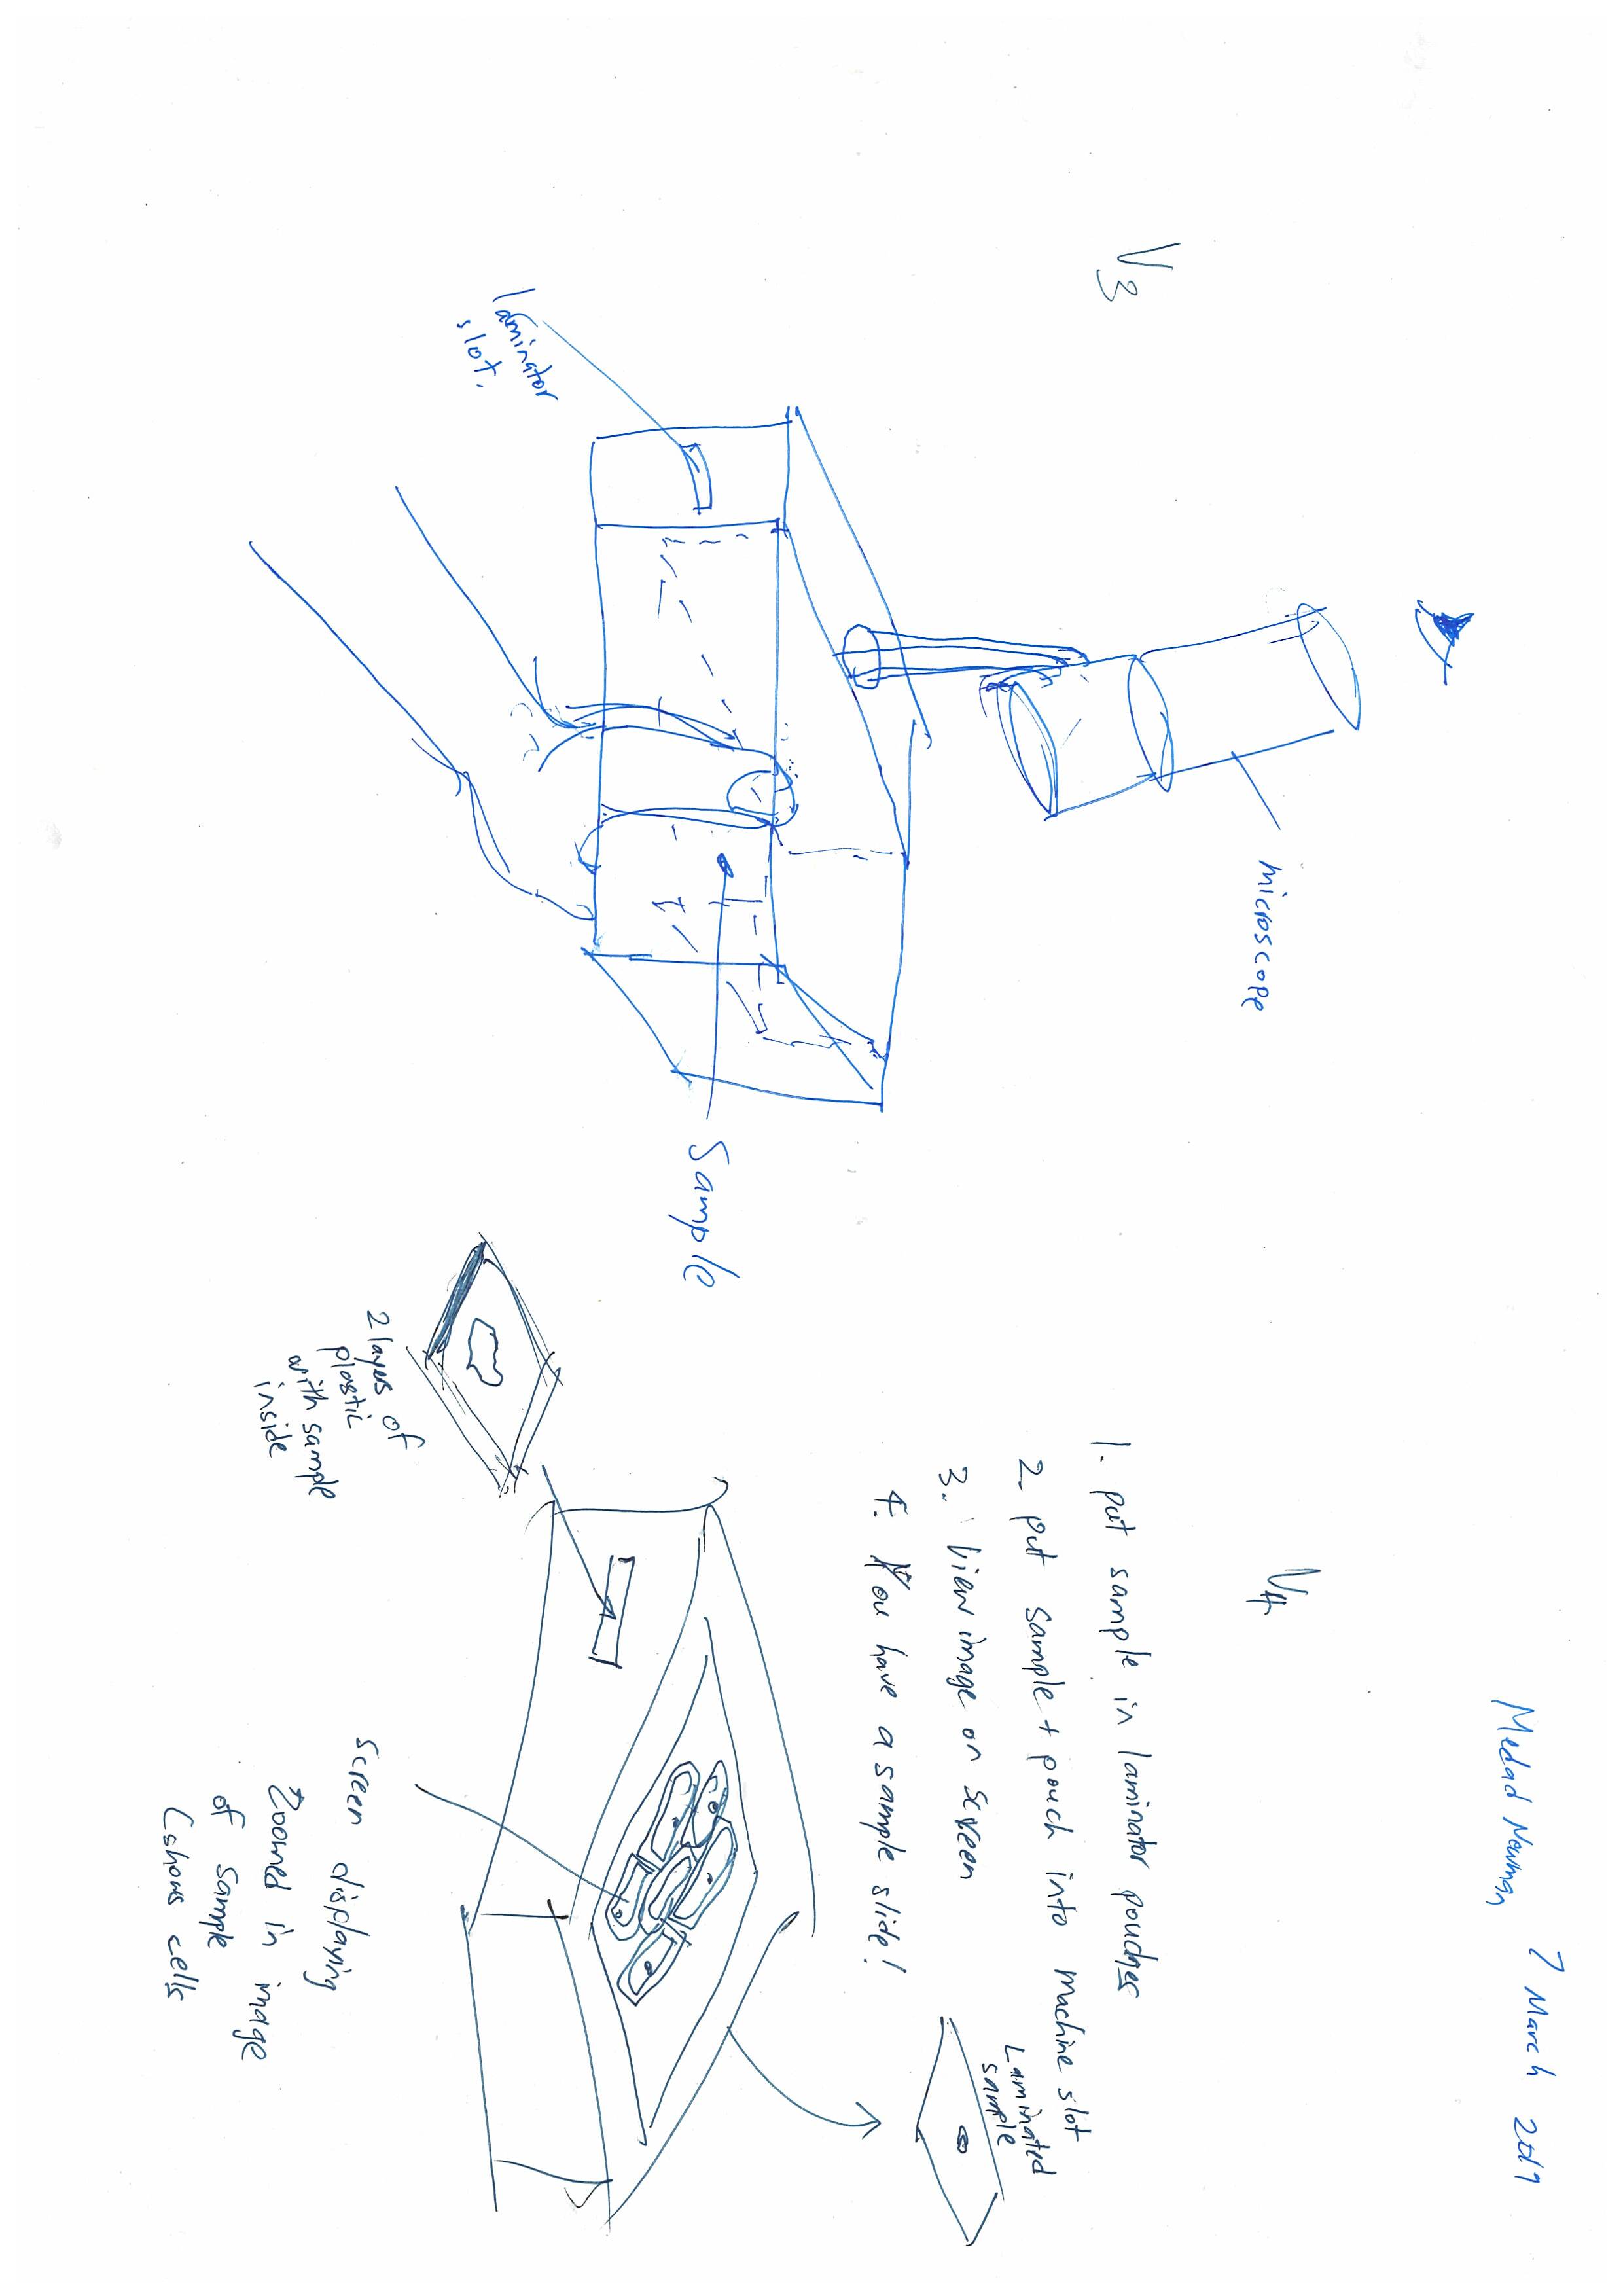 Medad Newman 7 March 2019
V3
microscope
Sample
laminator
slot.
V4
1. put sample in laminator pouches
2. put sample + pouch into machine slot
3. View image on screen
4. You have a sample slide!
Laminated
sample
2 layers of
plastic
with sample
inside
screen displaying
Zoomed in image
of sample
(shows cells